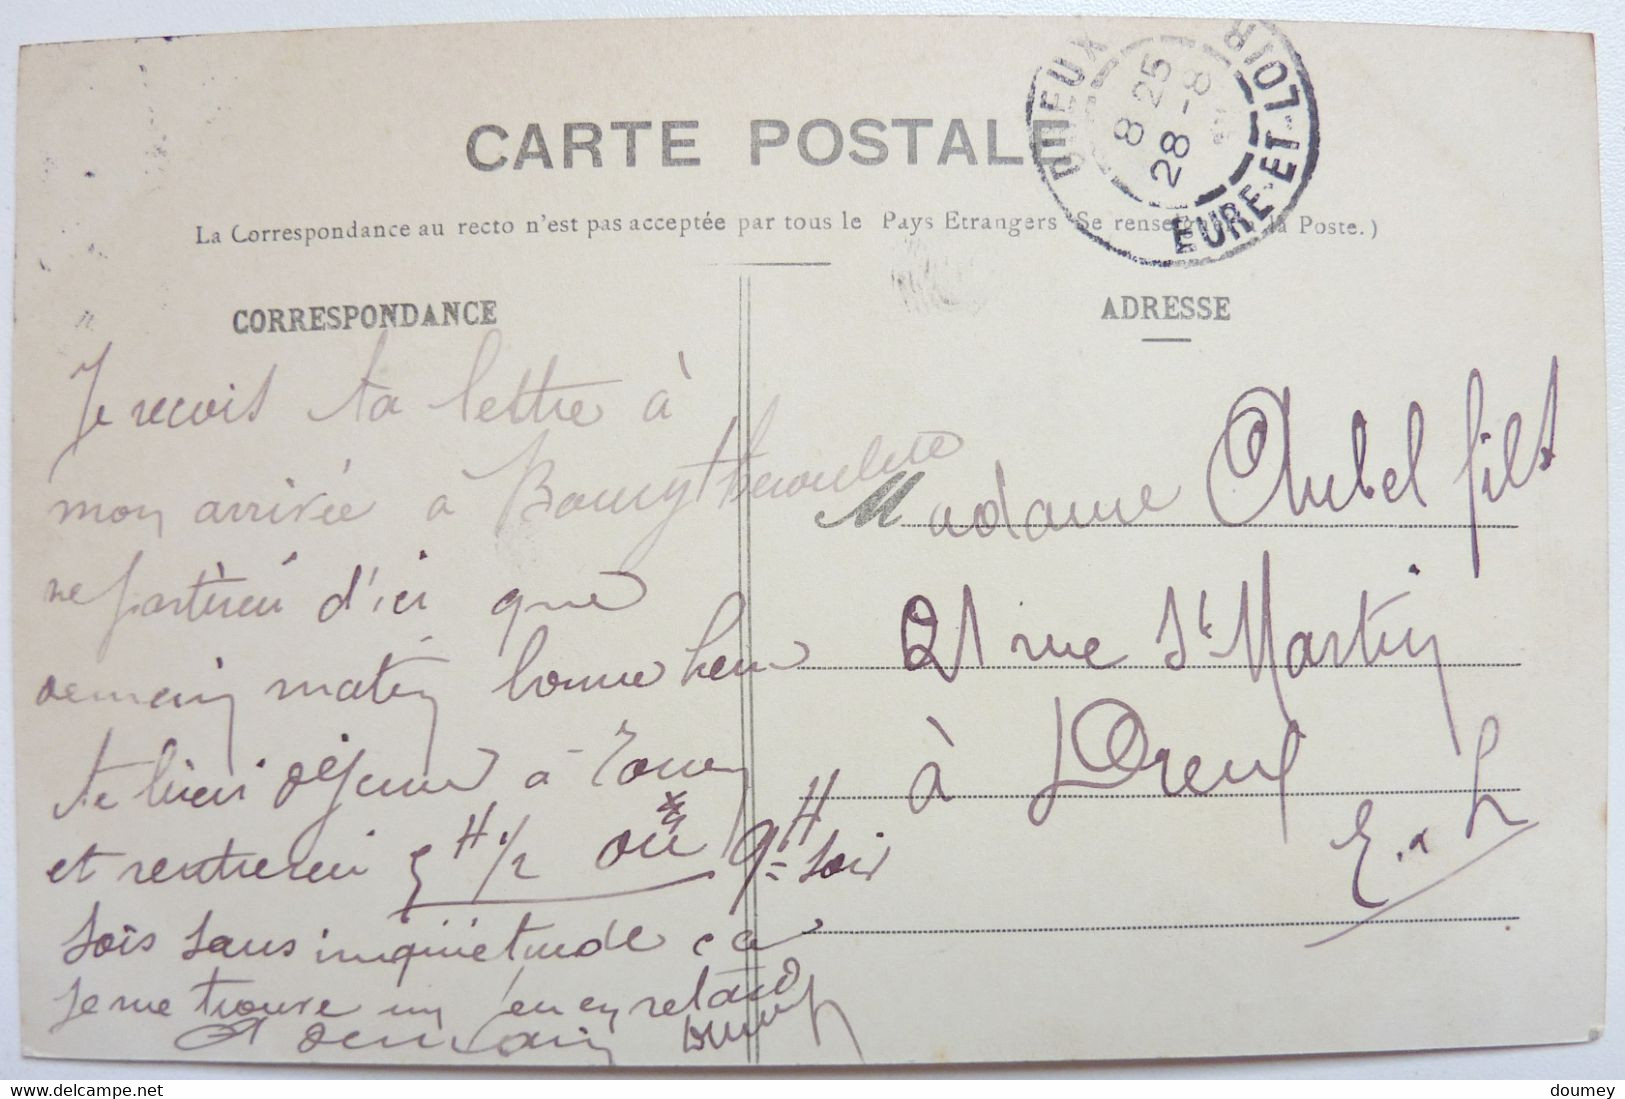 CARTE POSTALE
La Correspondance au recto n'est pas acceptée par tous le Pays Etrangers (Se renseigner à la Poste.)
DREUX
EURE-ET-LOIR
8 25
28 -8
CORRESPONDANCE
Je reçois ta lettre à
mon arrivée à Bourgtheroulde
ne partirai d'ici que
demain matin bonne heu
déjeuner à
et rentrerai 5H 1/2 ou 9H soir
sois sans inquiétude ça
je me trouve un peu en retard
A demain
ADRESSE
Madame Aubel fils
21 rue St Martin
à Dreux
E. & L
doumey